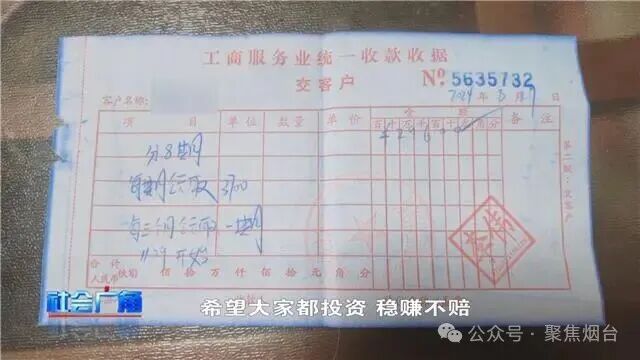 工商服务业统一收款收据
交客户
№ 5635732
年 月
客户名称:
项 目 单位 数量 单价 金 额 备注
百 十 万 千 百 十 元 角 分
分8期
每期领取 3700
每三个月领取一期
开始
第二联:交客户
合计
人民币 佰 拾 万 仟 佰 拾 元 角 分
社会广角
希望大家都投资 稳赚不赔
公众号·聚焦烟台